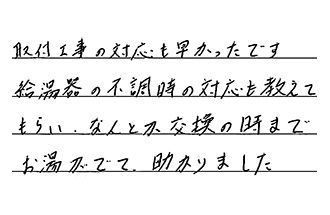 取付工事の対応も早かったです
給湯器の不調時の対応も教えて
もらい、なんとか交換の時まで
お湯がでて、助かりました